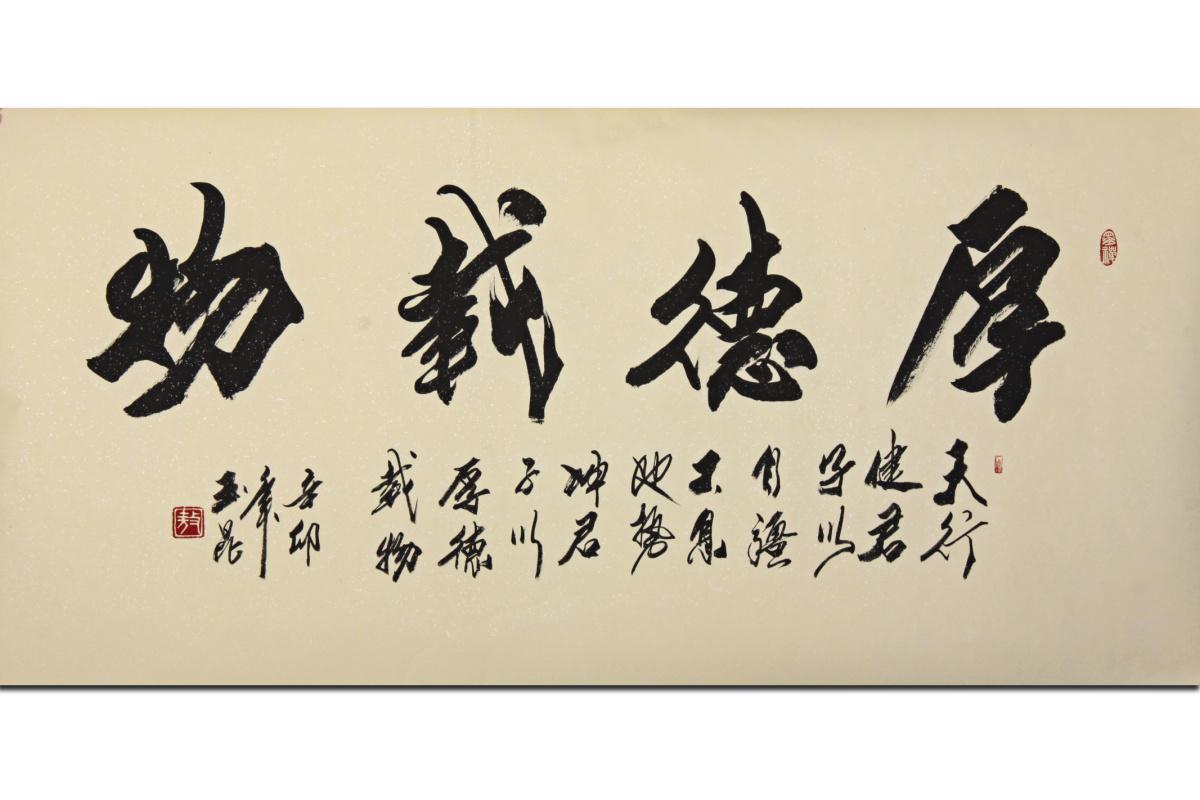 厚德载物
天行
健君
子以
自强
不息
地势
坤君
子以
厚德
载物
辛卯
年
玉昆